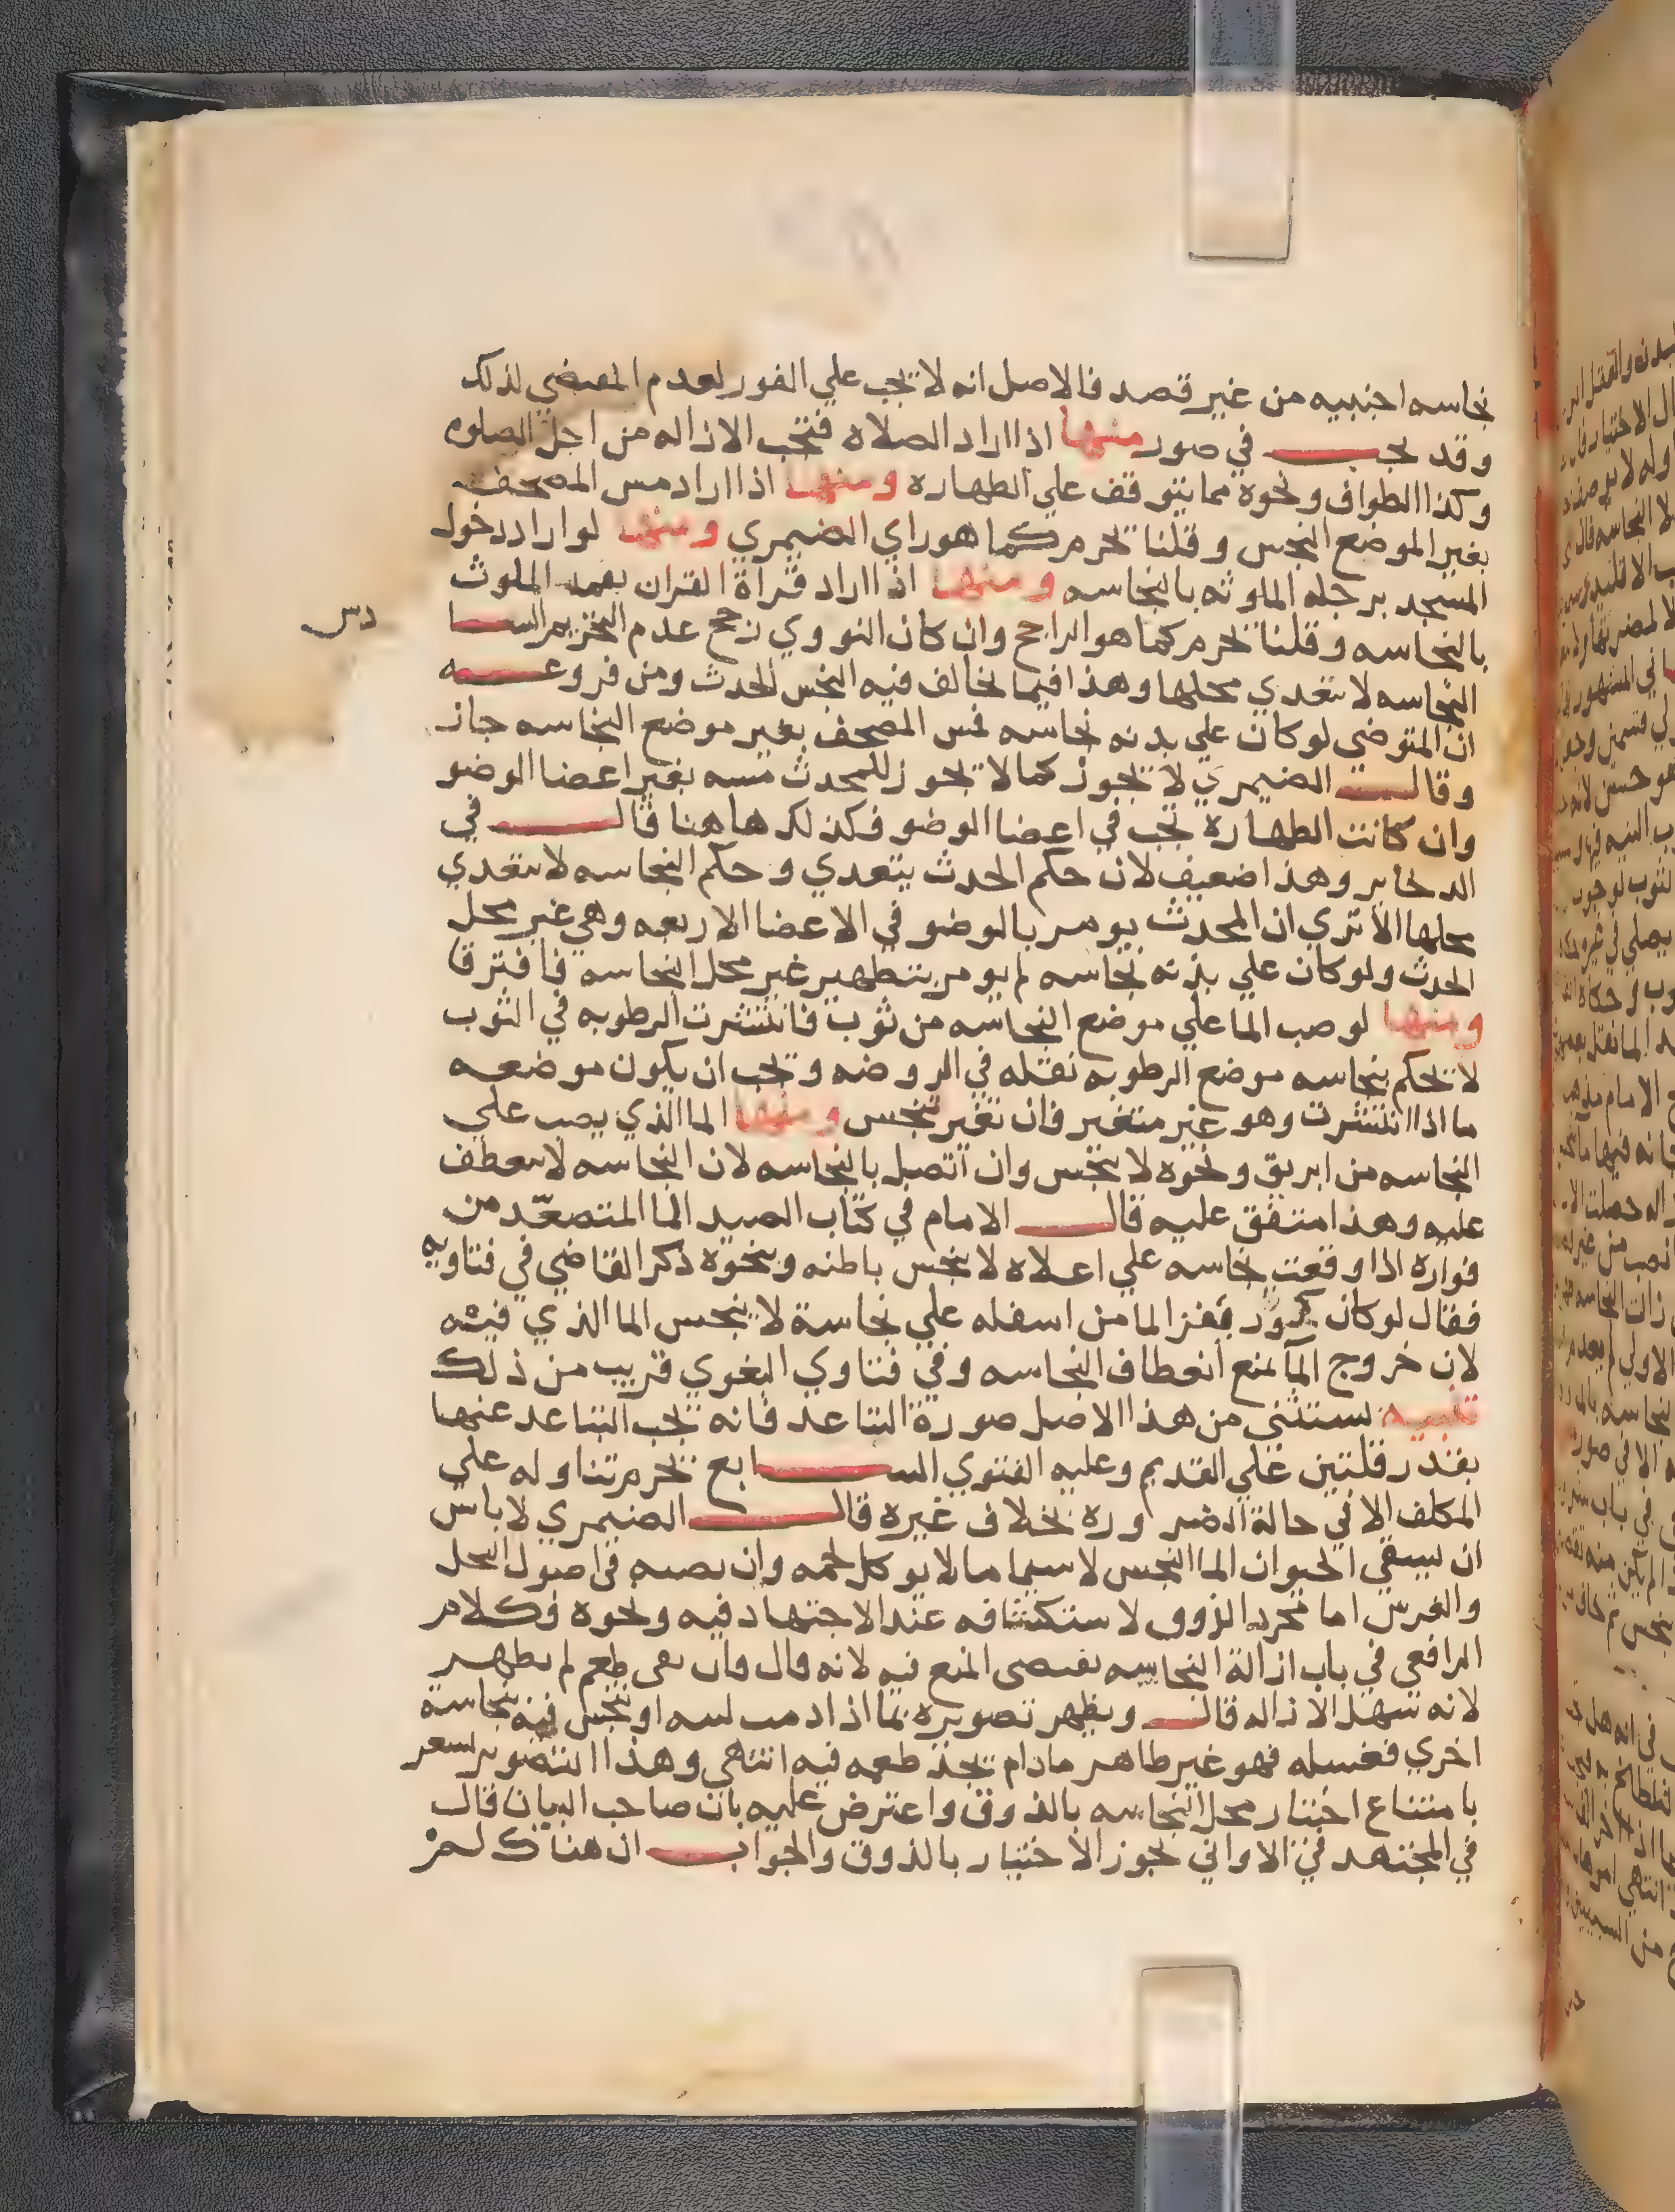 نجاسه اجنبيه من غير قصد فالاصل انه لا تجب علي الفور لعدم المقتضي لذلك
وقد تجب في صور منها اذا اراد الصلاة فتجب الازاله من اجل الصلوه
وكذا الطواف ونحوه مما يتوقف علي الطهاره ومنها اذا اراد مس المصحف
بغير الموضع النجس وقلنا تحرم كما هو راي الضيمري ومنها لو اراد دخول
المسجد برجله الملوثه بالنجاسه ومنها اذا اراد قراة القران بفمه الملوث
بالنجاسه وقلنا تحرم كما هو الراجح وان كان النووي رجح عدم التحريم السا
دس
النجاسه لا تتعدي محلها وهذا فيما يخالف فيه النجس الحدث ومن فروعه
ان المتوضي لو كان علي بدنه نجاسه فمس المصحف بغير موضع النجاسه جاز
وقال الضيمري لا يجوز كما لا يجوز للمحدث مسه بغير اعضا الوضو
وان كانت الطهارة تجب في اعضا الوضو فكذلك هاهنا قال في
الدخاير وهذا ضعيف لان حكم الحدث يتعدي وحكم النجاسه لا يتعدي
محلها الا تري ان المحدث يومر بالوضو في الاعضا الاربعه وهي غير محل
الحدث ولو كان علي بدنه نجاسه لم يومر بتطهير غير محل النجاسه فافترقا
ومنها لو صب الما علي موضع النجاسه من ثوب فانتشرت الرطوبه في الثوب
لا يحكم بنجاسه موضع الرطوبه نقله في الروضه وتجب ان يكون موضعه
ما اذا انتشرت وهو غير متغير فان تغير تنجس ومنها الما الذي يصب علي
النجاسه من ابريق ونحوه لا ينجس وان اتصل بالنجاسه لان النجاسه لا تنعطف
عليه وهذا متفق عليه قال الامام في كتاب الصيد الما المتصعد من
فوارة اذا وقعت نجاسه علي اعلاه لا ينجس باطنه وبنحوه ذكر القاضي في فتاويه
فقال لو كان كوز فقز الما من اسفله علي نجاسة لا ينجس الما الذي فيه
لان خروج الما يمنع انعطاف النجاسه وفي فتاوي البغوي قريب من ذلك
تنبيه يستثني من هذا الاصل صورة التباعد فانه تجب التباعد عنها
بقدر قلتين علي القديم وعليه الفتوي السابع تحرم تناوله علي
المكلف الا في حالة الضرورة بخلاف غيره قال الضيمري لا باس
ان يسقي الحيوان الما النجس لا سيما ما لا يوكل لحمه وان يصبه في اصول النخل
والغرس اما مجرد الذوق لاستكشافه عند الاجتهاد فيه ونحوه فكلام
الرافعي في باب ازالة النجاسه يقتضي المنع فيه لانه قال وان بقي طعم لم يطهر
لانه سهل الازاله قال ويظهر تصويره بما اذا دميت لثته او تنجس فيه بنجاسة
اخري فغسله فهو غير طاهر مادام يجد طعمه فيه انتهي وهذا التصوير يشعر
بامتناع اختبار محل النجاسه بالذوق واعترض عليه بان صاحب البيان قال
في المجتهد في الاواني يجوز الاختبار بالذوق والجواب ان هناك لم